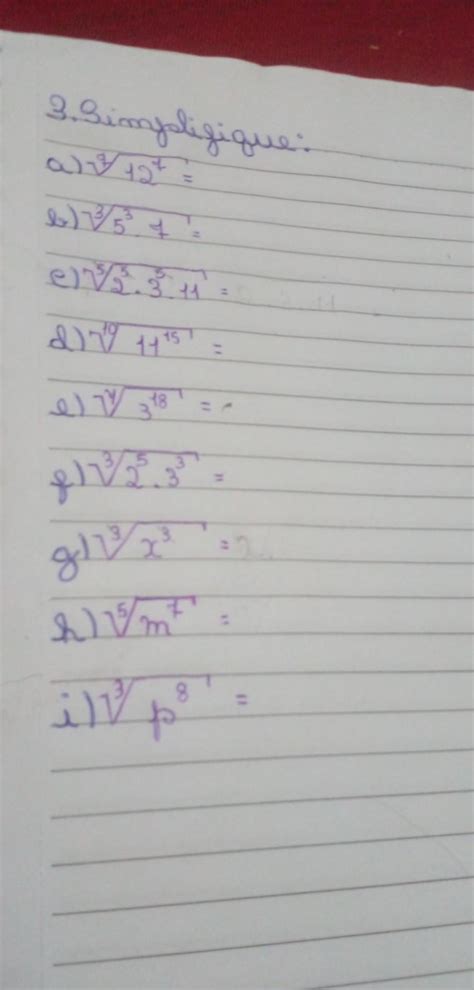 3. Simplifique:
a) ⁷√12⁷ =
b) ³√5³ . 7 =
c) ⁵√2⁵ . 3⁵ . 11 =
d) ¹⁰√11¹⁵ =
e) √3¹⁸ =
f) ³√2⁵ . 3³ =
g) ³√x³ =
h) ⁵√m⁷ =
i) ³√p⁸ =